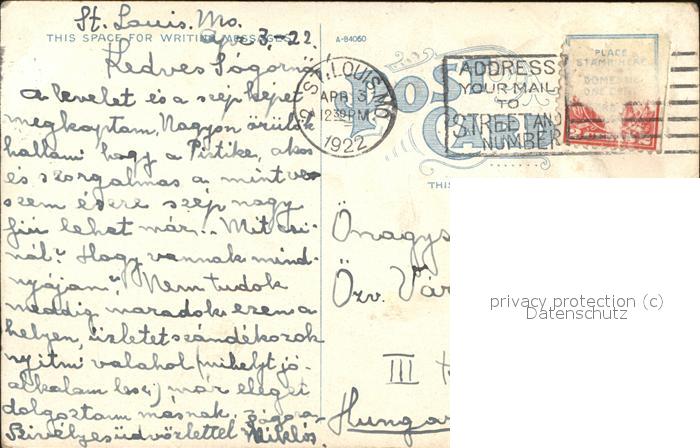 St. Louis. Mo.
THIS SPACE FOR WRITING MESSAGES
Apr. 3,-22.
A-84060
Kedves Sógornő
A levelet és a szép képet
megkaptam. Nagyon örülök
hallani hogy a Pistike, okos
és szorgalmas a mint ve-
szem észre szép nagy
fiú lehet már.. Mit csi-
nál? Hogy vannak mind-
nyájan? Nem tudok
meddig maradok ezen a
helyen, üzletet szándékozok
nyitni valahol (mihelyt jó
alkalom lesz,) már eleget
dolgoztam másnak.
Szívélyes üdvözlettel Miklós.
ST. LOUIS, MO.
APR 3
1230 PM
1922
ADDRESS
YOUR MAIL
TO
STREET AND
NUMBER
POST
CARD
PLACE
STAMP HERE
THIS
Önagys
Özv. Vár
III
Hungar
privacy protection (c)
Datenschutz